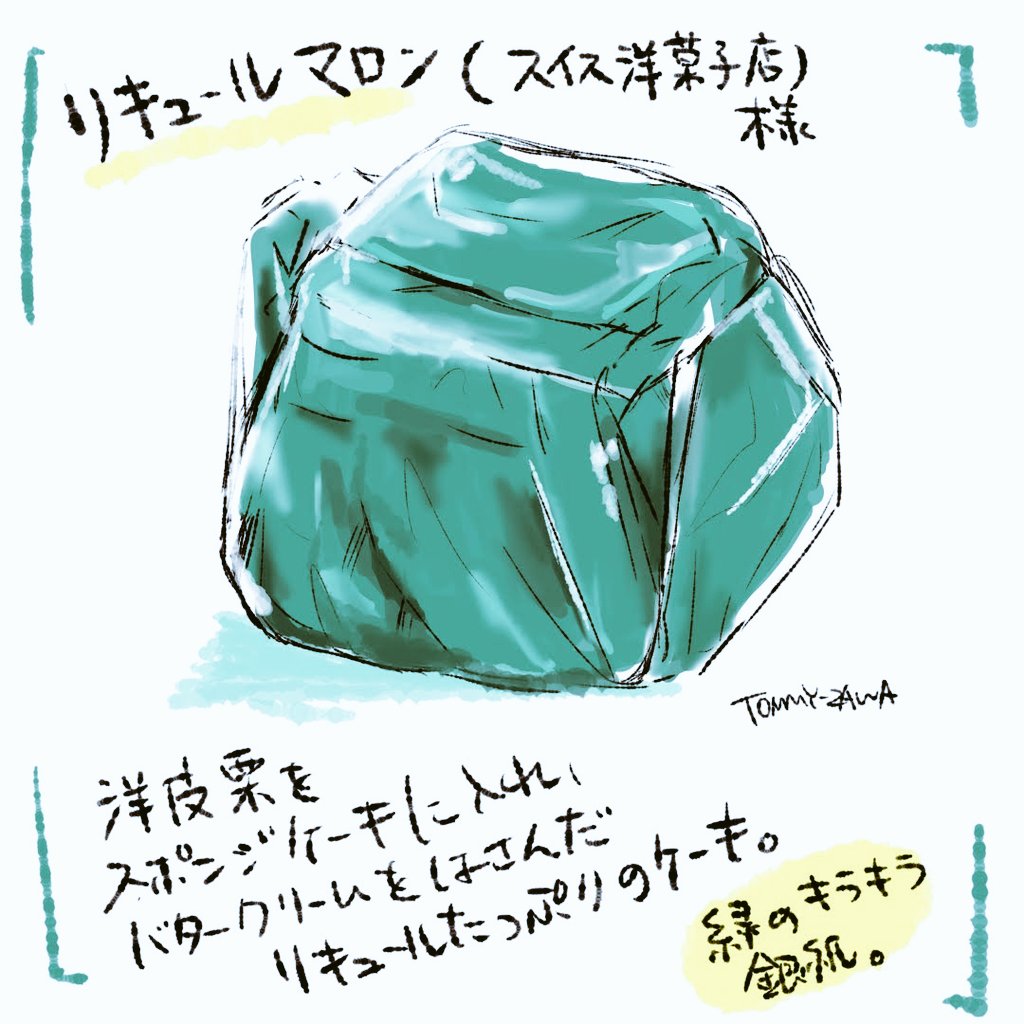 リキュールマロン(スイス洋菓子店)
様
TOMMY-ZAWA
洋皮栗を
スポンジケーキに入れ
バタークリームをはさんだ
リキュールたっぷりのケーキ。
緑のキラキラ
銀紙。